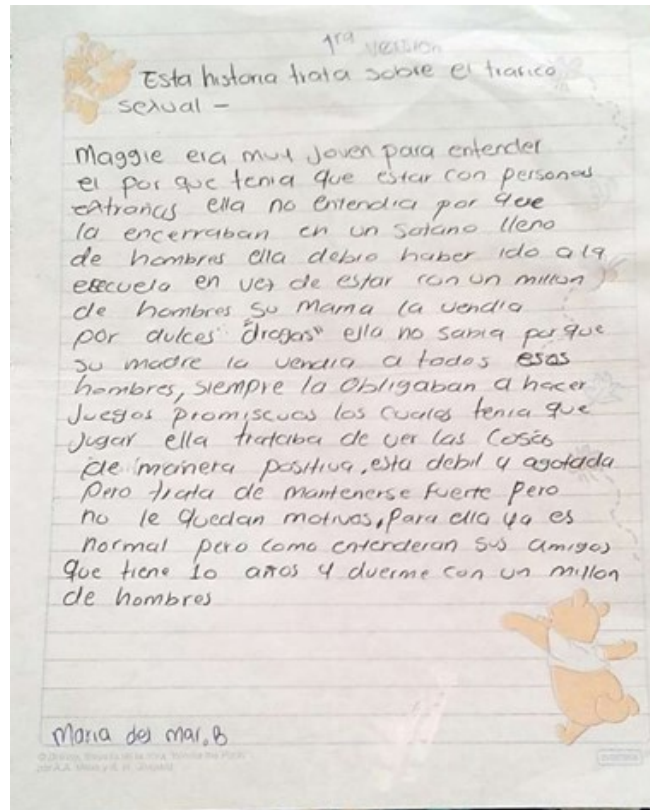 1ra version
Esta historia trata sobre el trafico
sexual -
Maggie era muy joven para entender
el por que tenia que estar con personas
extrañas ella no entendia por que
la encerraban en un sotano lleno
de hombres ella debio haber ido ala
escuela en vez de estar con un millon
de hombres su mama la vendia
por dulces "drogas" ella no sabia por que
su madre la vendia a todos esos
hombres, siempre la obligaban a hacer
Juegos promiscuos los cuales tenia que
Jugar ella trataba de ver las cosas
de manera positiva, esta debil y agotada
Pero trata de mantenerse fuerte pero
no le quedan motivos, Para ella ya es
normal pero como entenderan sus amigos
que tiene 10 años y duerme con un millon
de hombres
Maria del mar. B